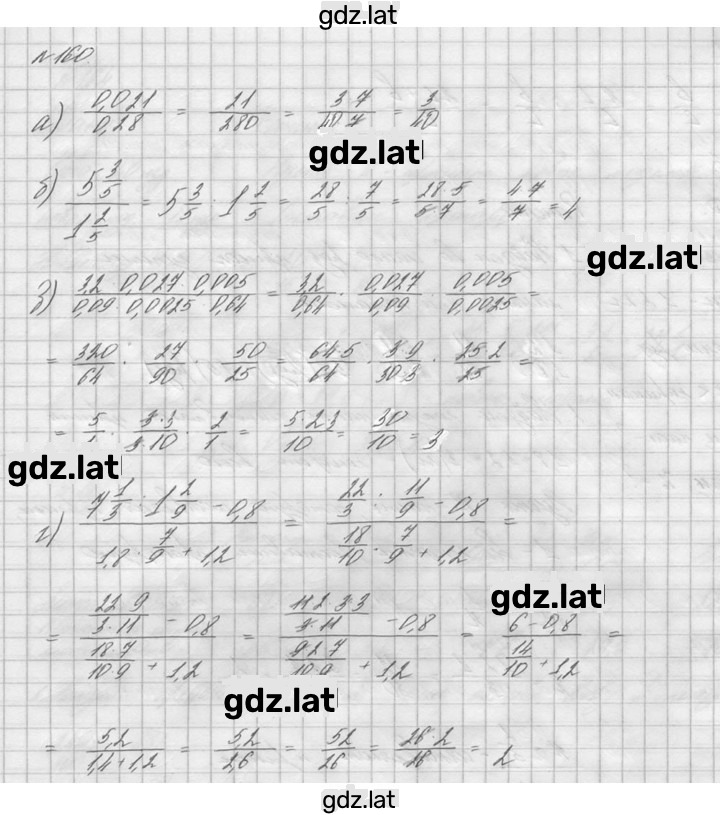 gdz.lat
№160.
а) 0,021/0,28 = 21/280 = 3·7/40·7 = 3/40
gdz.lat
б) 5 3/5 / 1 2/5 = 5 3/5 : 1 2/5 = 28/5 : 7/5 = 28·5/5·7 = 4·7/7 = 4
gdz.lat
в) 3,2·0,027·0,005 / 0,09·0,0025·0,64 = 3,2/0,64 · 0,027/0,09 · 0,005/0,0025 =
= 320/64 · 27/90 · 50/25 = 64·5/64 · 3·9/30·3 · 25·2/25 =
= 5/1 · 3·3/3·10 · 2/1 = 5·2·3/10 = 30/10 = 3
gdz.lat
г) 7 1/3 : 1 2/9 - 0,8 / 1,8 · 7/9 + 1,2 = 22/3 : 11/9 - 0,8 / 18/10 · 7/9 + 1,2 =
gdz.lat
= 22·9/3·11 - 0,8 / 18·7/10·9 + 1,2 = 11·2·3·3/3·11 - 0,8 / 9·2·7/10·9 + 1,2 = 6 - 0,8 / 14/10 + 1,2 =
gdz.lat
= 5,2/1,4+1,2 = 5,2/2,6 = 52/26 = 26·2/26 = 2
gdz.lat